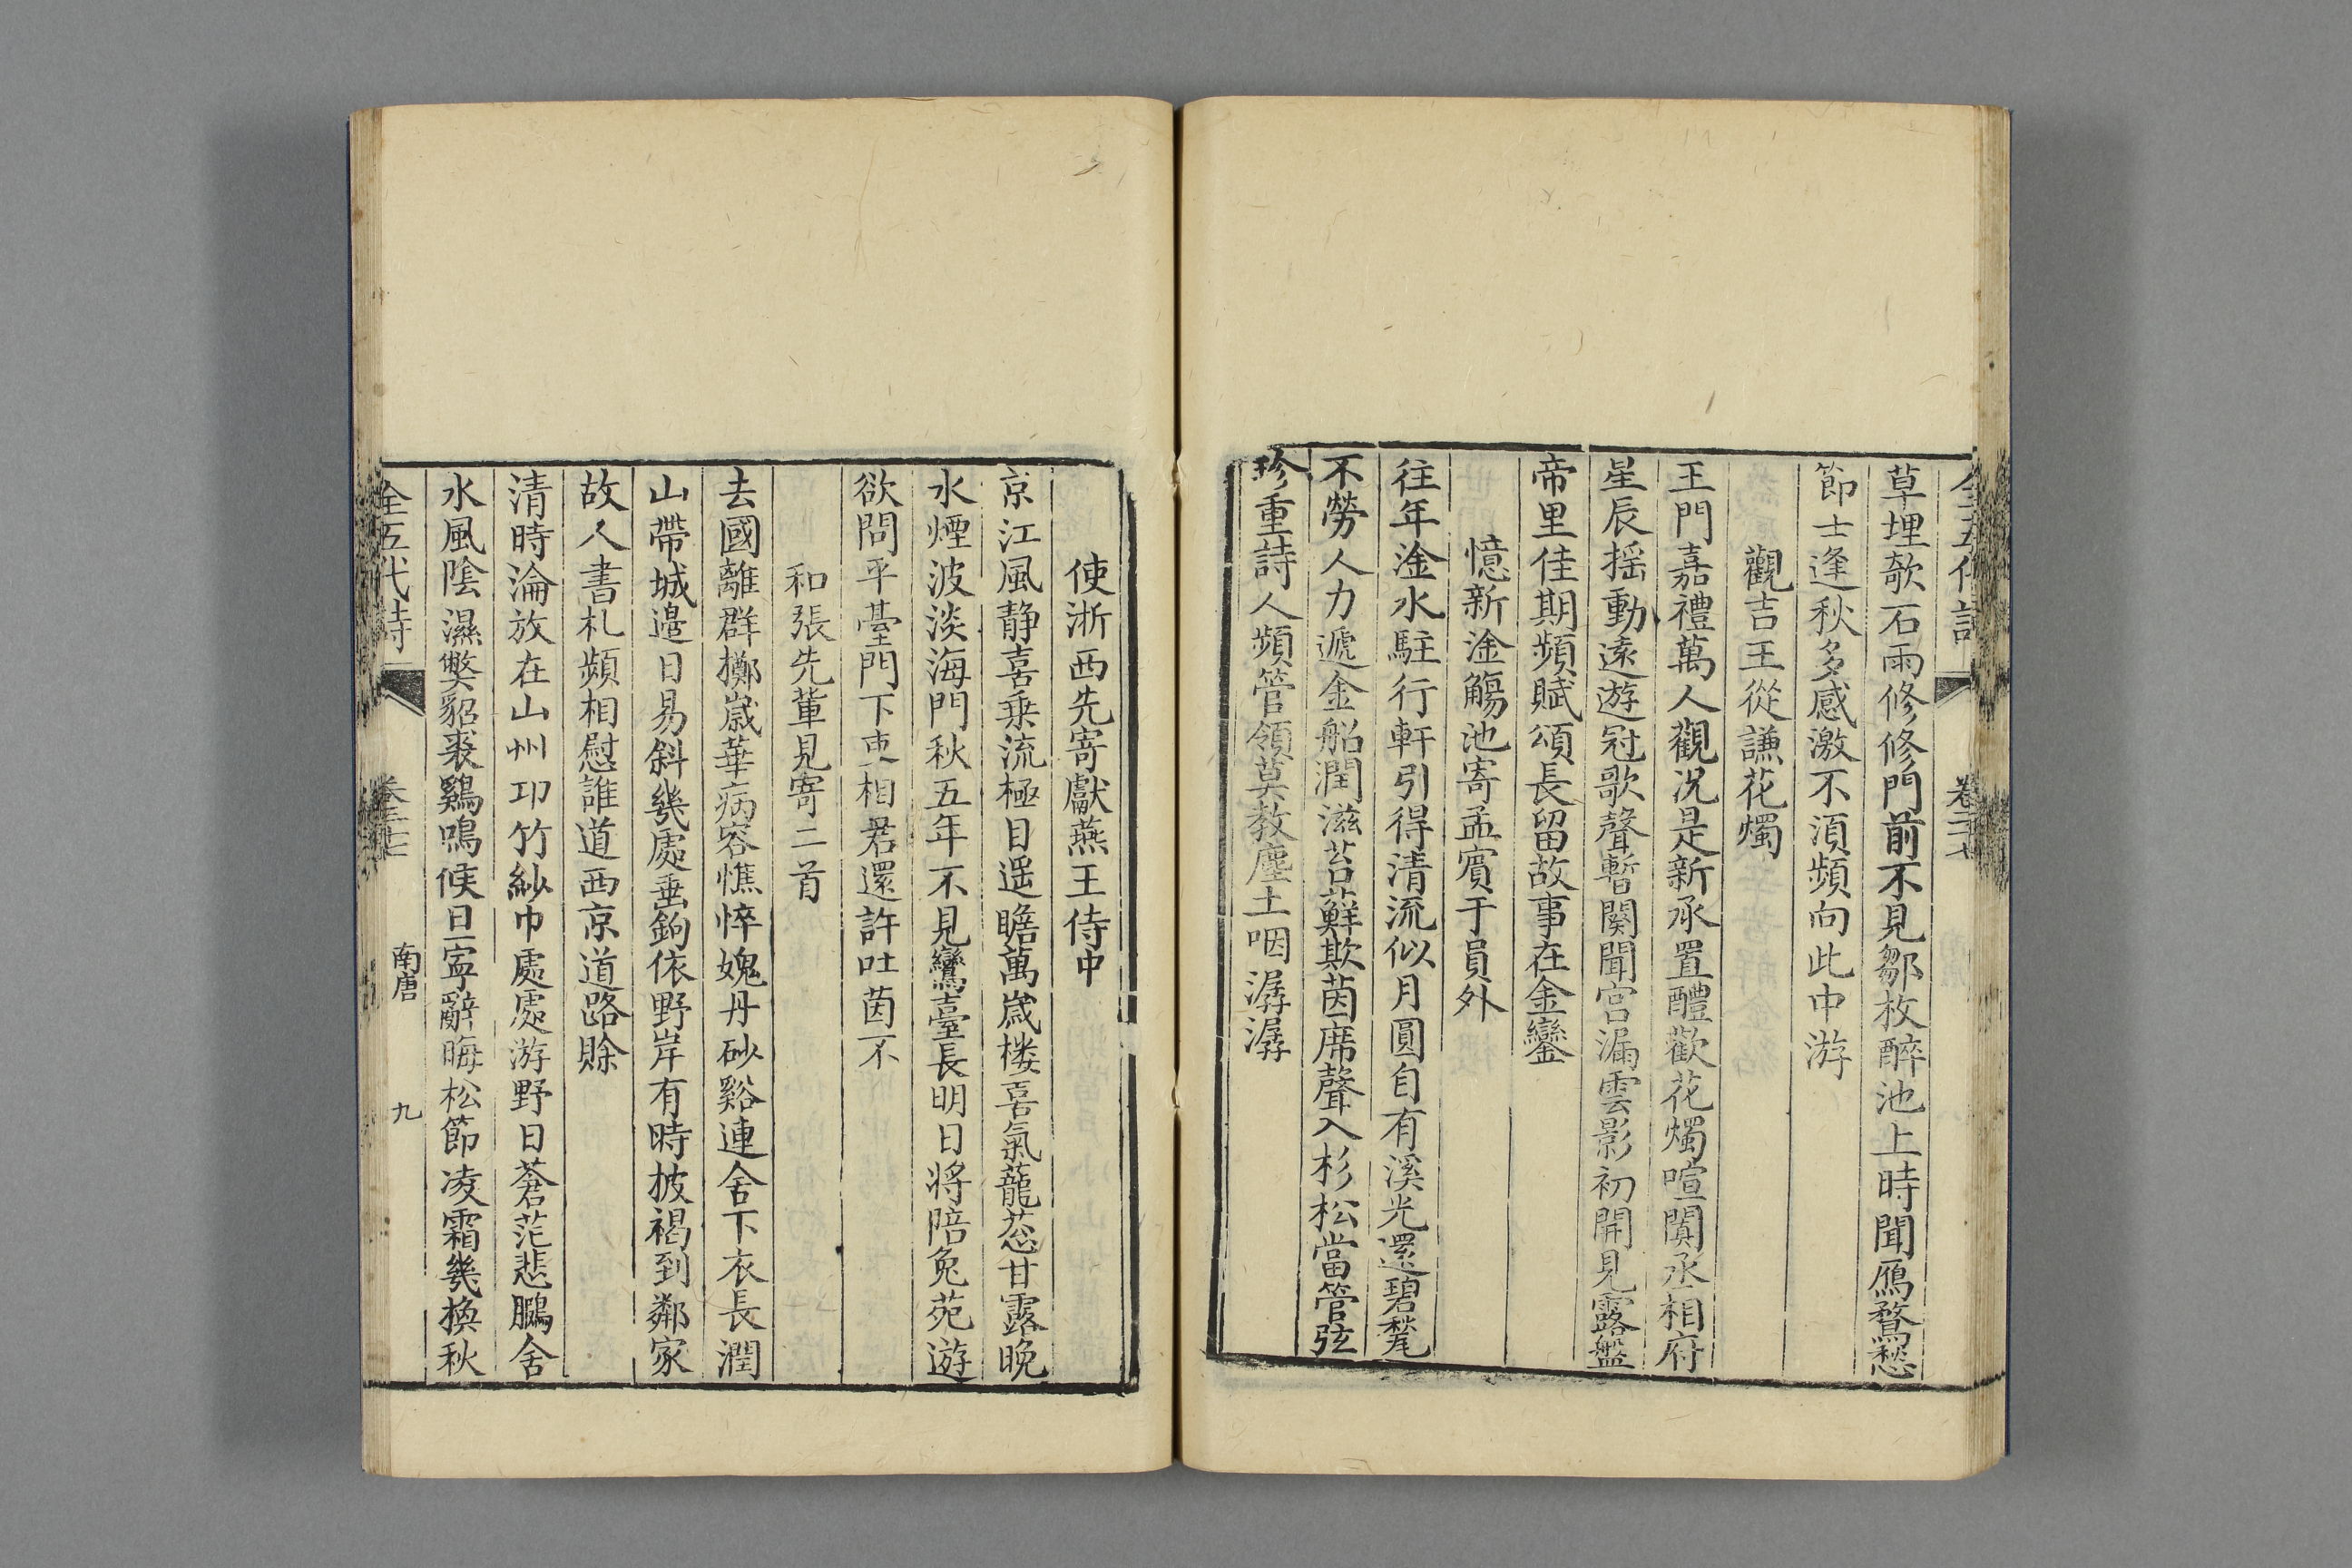 全五代詩 卷三十七
草埋欹石雨修修門前不見鄒枚醉池上時聞鴈鶩愁
節士逢秋多感激不湏頻向此中游
觀吉王從謙花燭
王門嘉禮萬人觀况是新承置醴歡花燭喧闐丞相府
星辰揺動遠遊冠歌聲暫闋聞宫漏雲影初開見露盤
帝里佳期頻賦頌長留故事在金鑾
憶新淦觴池寄孟賓于員外
往年淦水駐行軒引得清流似月圓自有溪光還碧甃
不勞人力遞金船潤滋苔蘚欺茵席聲入杉松當管弦
珍重詩人頻管領莫教塵土咽潺潺
使浙西先寄獻燕王侍中
京江風静喜乗流極目遥瞻萬歳楼喜氣蘢葱甘露晚
水煙波淡海門秋五年不見鸞臺長明日將陪兔苑遊
欲問平臺門下吏相君還許吐茵不
和張先輩見寄二首
去國離群擲歳華病容憔悴媿丹砂谿連舍下衣長潤
山帶城邉日易斜幾處垂鉤依野岸有時披褐到鄰家
故人書札頻相慰誰道西京道路賖
清時淪放在山州卭竹紗巾處處游野日蒼茫悲鵩舍
水風陰濕獘貂裘鷄鳴候旦寧辭晦松節凌霜幾換秋
全五代詩 卷三十七 南唐 九